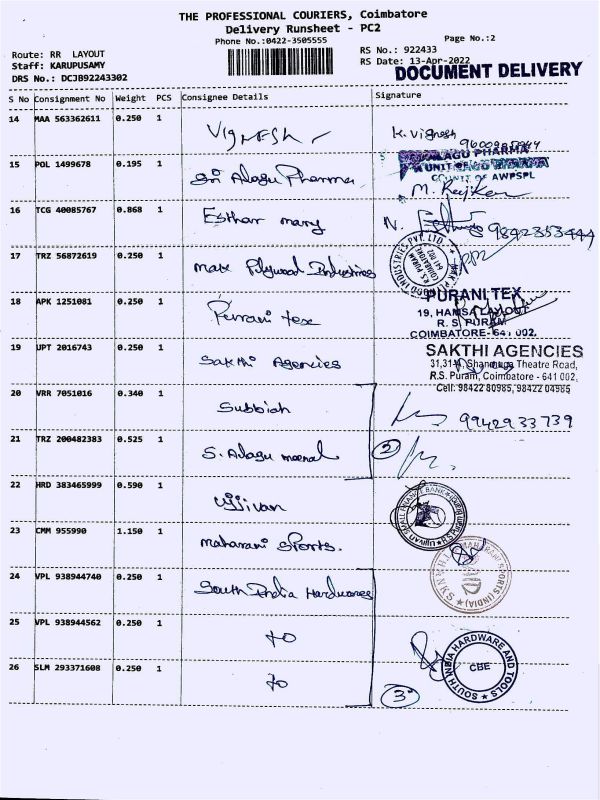 THE PROFESSIONAL COURIERS, Coimbatore
Delivery Runsheet - PC2
Phone No.:0422-3505555
Page No.:2
Route: RR LAYOUT
Staff: KARUPUSAMY
DRS No.: DCJB92243302
RS No.: 922433
RS Date: 13-Apr-2022
DOCUMENT DELIVERY
S No Consignment No Weight PCS Consignee Details Signature
14 MAA 563362611 0.250 1 VIGNESH K. Vignesh
15 POL 1499678 0.195 1 Sri Alagu Pharma
ALAGU PHARMA
A UNIT OF
OF AWPSPL
16 TCG 40085767 0.868 1 Esthar mary N. 9842353444
17 TRZ 56872619 0.250 1 Max Plywood Industries
R.S PURAM
COIMBATORE
641 002
18 APK 1251081 0.250 1 Purani tex
PURANI TEX
19, HAMSA LAYOUT
R. S. PURAM
COIMBATORE-641 002.
19 UPT 2016743 0.250 1 Sakthi Agencies
SAKTHI AGENCIES
31,31-A, Shanmuga Theatre Road,
R.S. Puram, Coimbatore - 641 002,
Cell: 98422 80985, 98422 04985
20 VRR 7051016 0.340 1 Subbiah 9942933739
21 TRZ 200482383 0.525 1 S. Alagu meenal 2
22 HRD 383465999 0.590 1 Ujjivan
UJJIVAN SMALL FINANCE BANK
23 CMM 955990 1.150 1 Maharani Sports.
SPORTS (INDIA)
24 VPL 938944740 0.250 1 South India Hardwares
25 VPL 938944562 0.250 1 to
SOUTH INDIA HARDWARE AND TOOLS
CBE
26 SLM 293371608 0.250 1 to 3